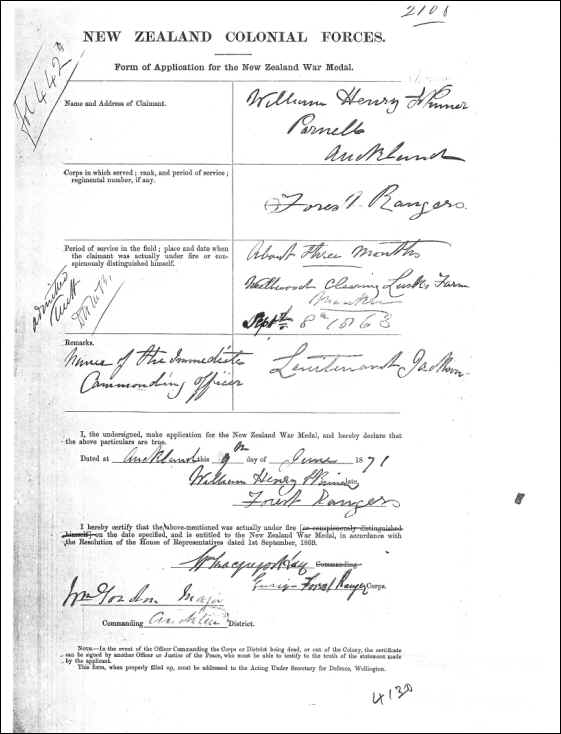 2108
NEW ZEALAND COLONIAL FORCES.
Form of Application for the New Zealand War Medal.
Name and Address of Claimant.
William Henry
Parnell
Auckland
Corps in which served; rank, and period of service;
regimental number, if any.
Forest Rangers.
Period of service in the field; place and date when
the claimant was actually under fire or con-
spicuously distinguished himself.
About three Months
Clearing Lusk's Farm
Septr 8th 1863
admitted
Remarks.
Name of the Immediate
Commanding Officer
Lieutenant Jackson
I, the undersigned, make application for the New Zealand War Medal, and hereby declare that
the above particulars are true.
Dated at Auckland this 9th day of June 1871
William Henry
Forest Rangers
I hereby certify that the above-mentioned was actually under fire [or conspicuously distinguished
himself] on the date specified, and is entitled to the New Zealand War Medal, in accordance with
the Resolution of the House of Representatives dated 1st September, 1869.
Commanding
Ensign Forest Rangers Corps.
Wm Gordon Major
Commanding District.
NOTE.—In the event of the Officer Commanding the Corps or District being dead, or out of the Colony, the certificate
can be signed by another Officer or Justice of the Peace, who must be able to testify to the truth of the statement made
by the applicant.
This form, when properly filled up, must be addressed to the Acting Under Secretary for Defence, Wellington.
4130